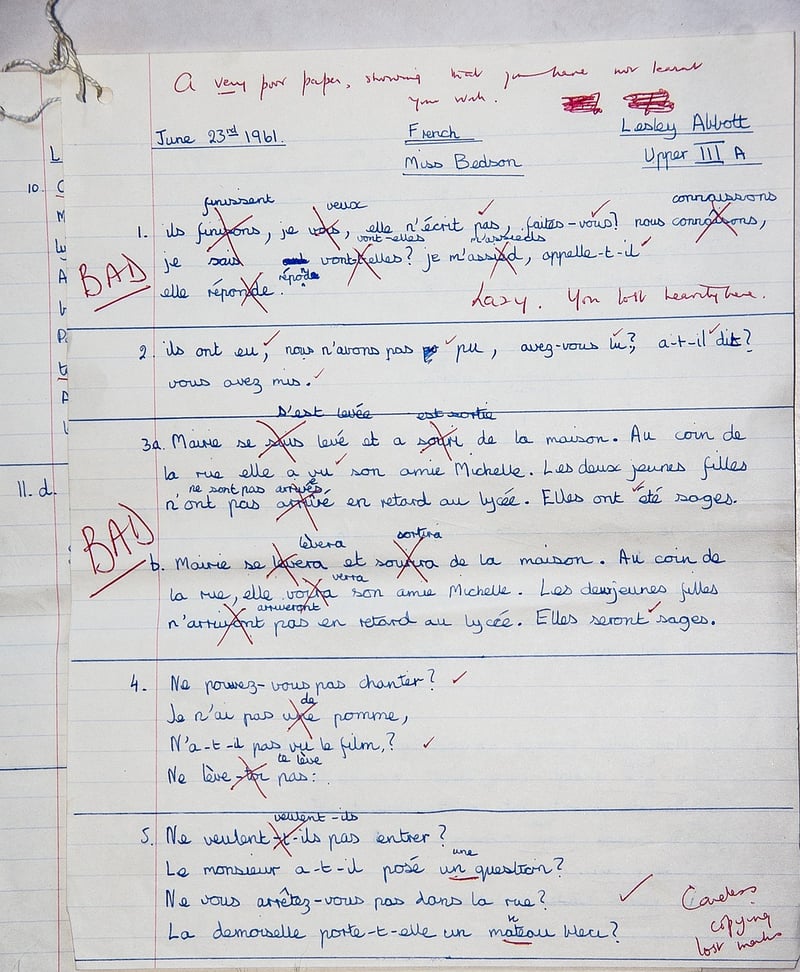 A very poor paper, showing that you have not learnt
your work.
June 23rd 1961.
French
Lesley Abbott
Miss Bedson
Upper III A
L
10.
finissent
veux
connaissons
1. ils finisons, je vous, elle n'écrit pas, faites-vous? nous connaîsons,
vont-elles
m'assieds
je sais vont-t-elles? je m'assied, appelle-t-il
BAD
répond
elle réponde.
Lazy. You lost heavily here.
2. ils ont eu, nous n'avons pas pu, avez-vous lu? a-t-il dit?
vous avez mis.
s'est levée
est sortie
3a. Mairie se sous levé et a sorti de la maison. Au coin de
la rue elle a vu son amie Michelle. Les deux jeunes filles
ne sont pas arrivés
n'ont pas arrivé en retard au lycée. Elles ont été sages.
BAD
lèvera
sortira
b. Mairie se levera et soutira de la maison. Au coin de
verra
la rue, elle voira son amie Michelle. Les deux jeunes filles
arriveront
n'arrivont pas en retard au lycée. Elles seront sages.
4. Ne pouvez-vous pas chanter?
de
Je n'ai pas une pomme,
N'a-t-il pas vu le film,?
te lève
Ne lève-toi pas:
veulent-ils
5. Ne veulent-t-ils pas entrer?
une
Le monsieur a-t-il posé un question?
Ne vous arrêtez-vous pas dans la rue?
La demoiselle porte-t-elle un mateau bleu?
Careless
copying
lost marks
11. d.